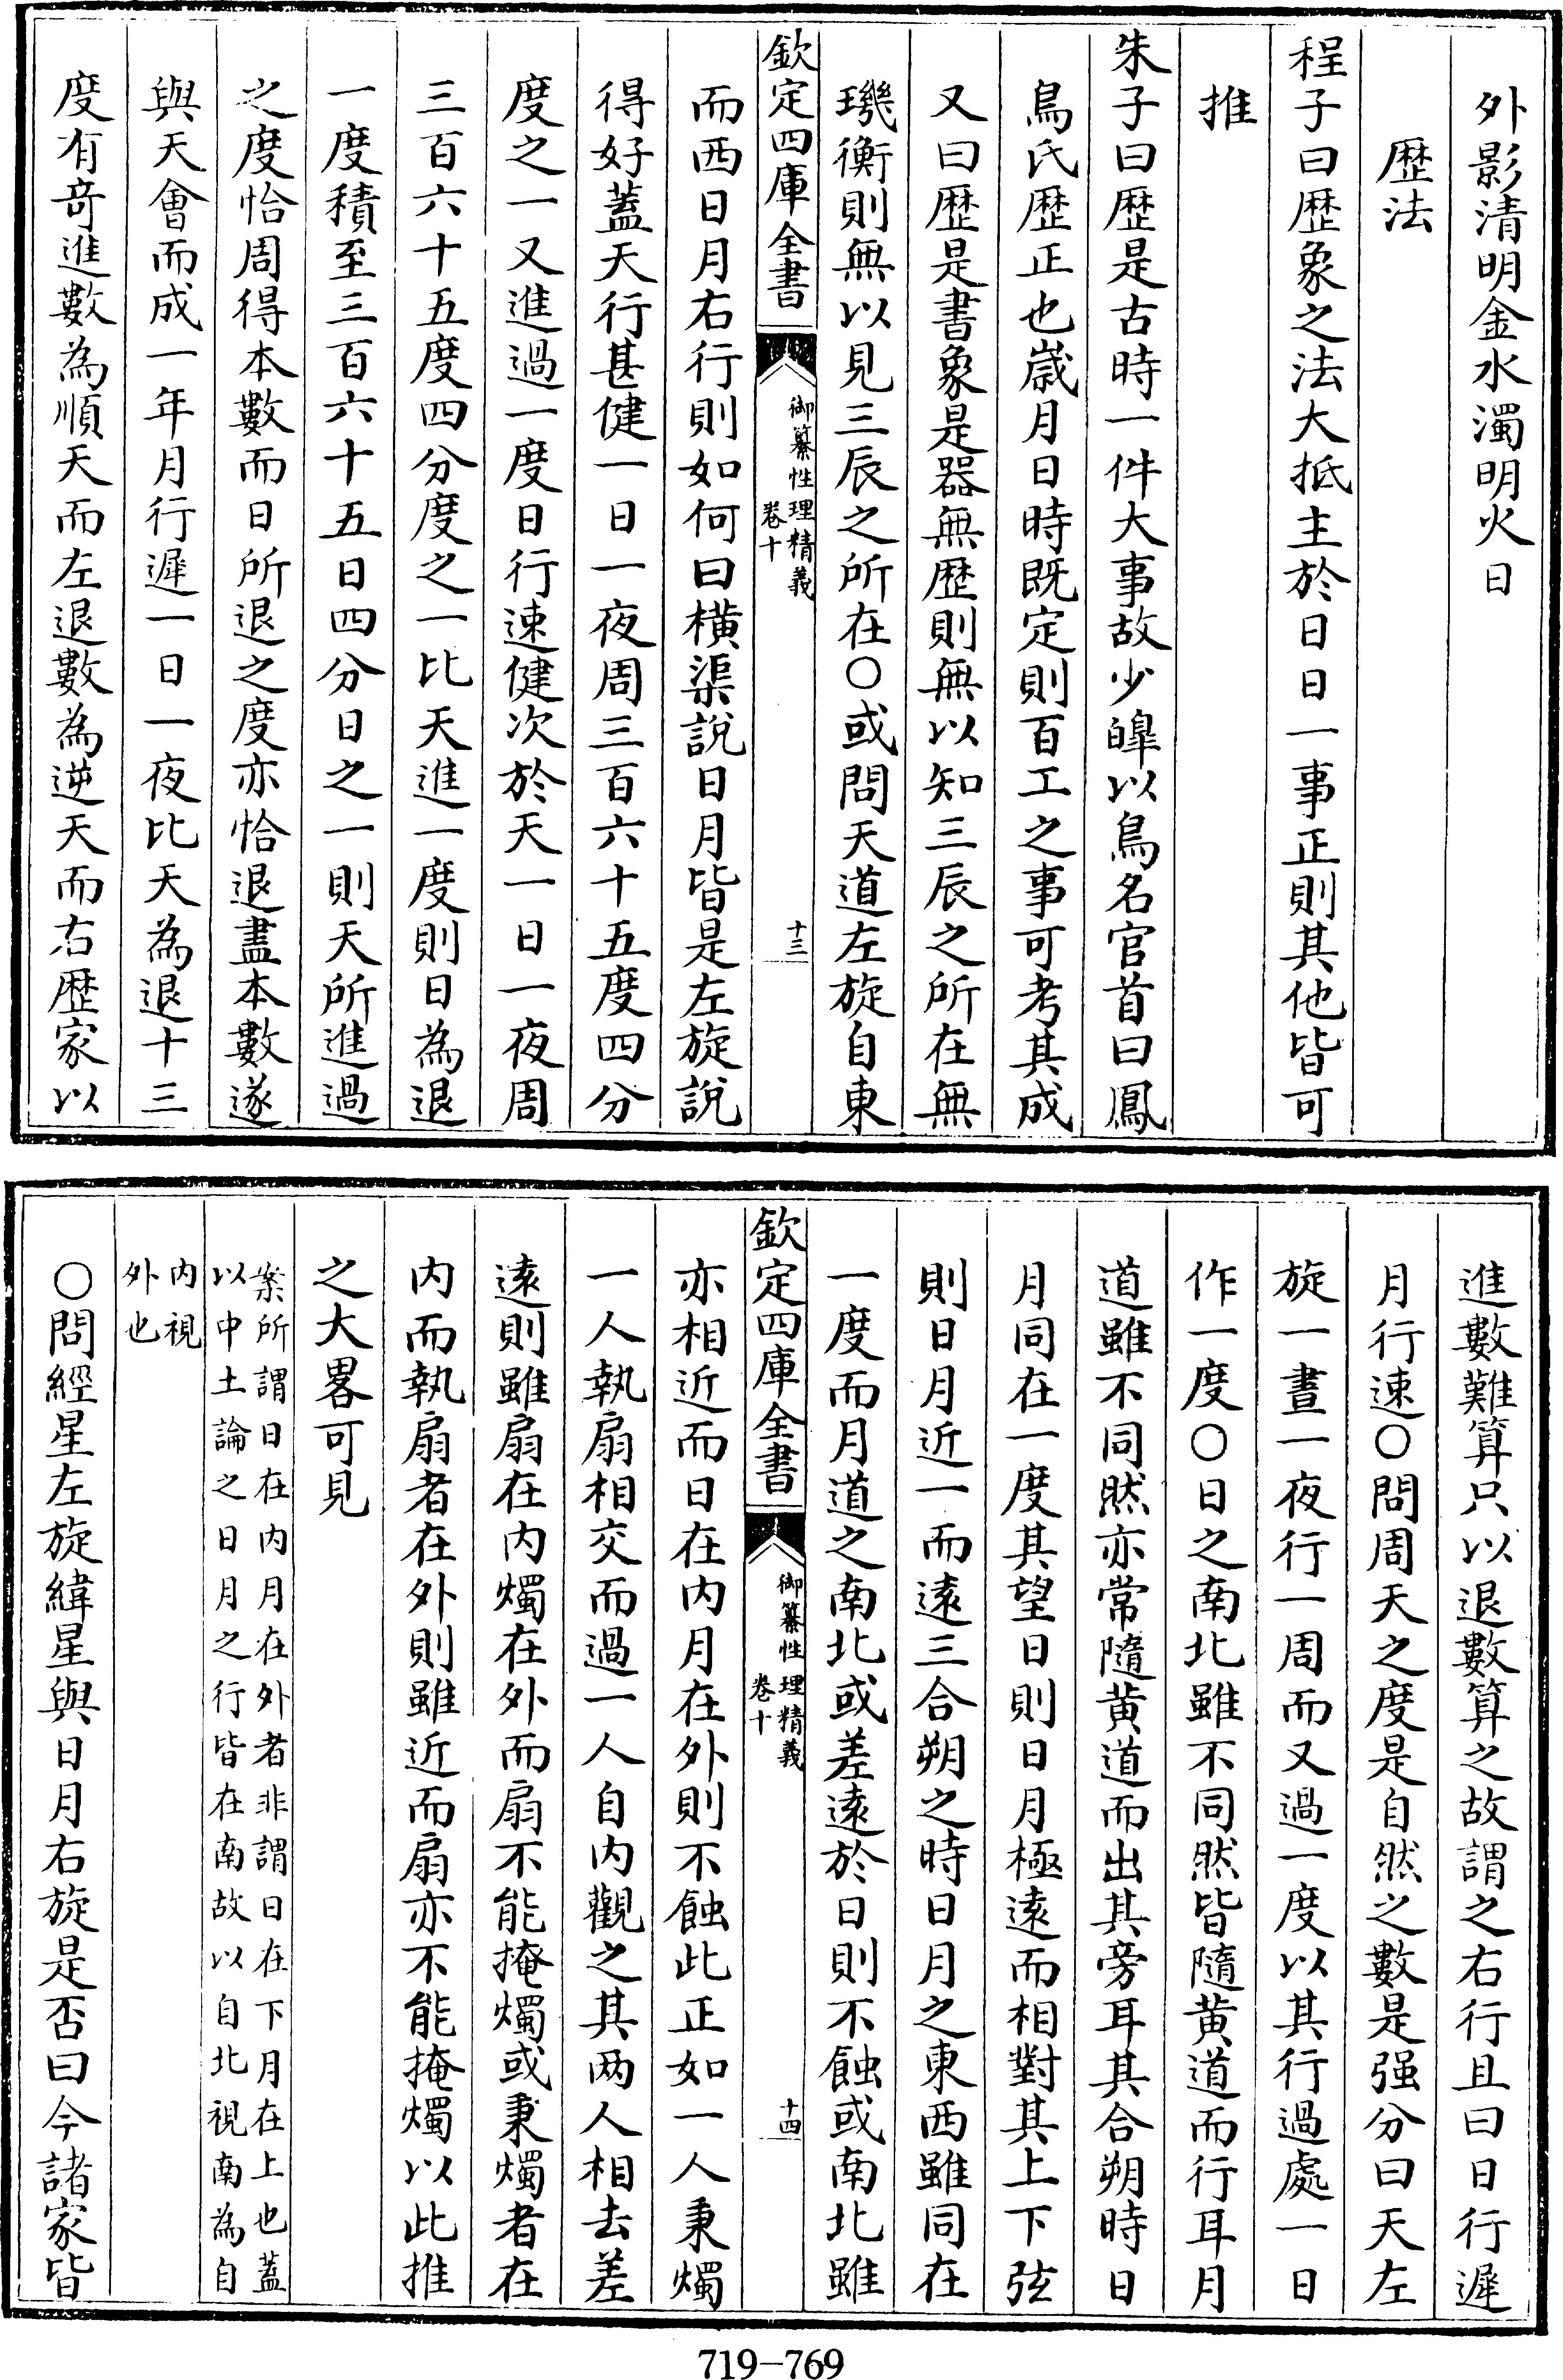 外影清明金水濁明火日
歴法
程子曰歴象之法大抵主於日日一事正則其他皆可
推
朱子曰歴是古時一件大事故少皥以鳥名官首曰鳳
鳥氏歴正也嵗月日時既定則百工之事可考其成
又曰歴是書象是器無歴則無以知三辰之所在無
璣衡則無以見三辰之所在○或問天道左旋自東
欽定四庫全書
御纂性理精義
卷十
十三
而西日月右行則如何曰横渠說日月皆是左旋說
得好蓋天行甚健一日一夜周三百六十五度四分
度之一又進過一度日行速健次於天一日一夜周
三百六十五度四分度之一比天進一度則日為退
一度積至三百六十五日四分日之一則天所進過
之度恰周得本數而日所退之度亦恰退盡本數遂
與天會而成一年月行遲一日一夜比天為退十三
度有竒進數為順天而左退數為逆天而右歴家以
進數難算只以退數算之故謂之右行且曰日行遲
月行速○問周天之度是自然之數是强分曰天左
旋一晝一夜行一周而又過一度以其行過處一日
作一度○日之南北雖不同然皆隨黄道而行耳月
道雖不同然亦常隨黄道而出其旁耳其合朔時日
月同在一度其望日則日月極遠而相對其上下弦
則日月近一而遠三合朔之時日月之東西雖同在
一度而月道之南北或差遠於日則不蝕或南北雖
欽定四庫全書
御纂性理精義
卷十
十四
亦相近而日在内月在外則不蝕此正如一人秉燭
一人執扇相交而過一人自内觀之其两人相去差
遠則雖扇在内燭在外而扇不能掩燭或秉燭者在
内而執扇者在外則雖近而扇亦不能掩燭以此推
之大畧可見
案所謂日在内月在外者非謂日在下月在上也蓋
以中土論之日月之行皆在南故以自北視南為自
内視
外也
○問經星左旋緯星與日月右旋是否曰今諸家皆
719-769